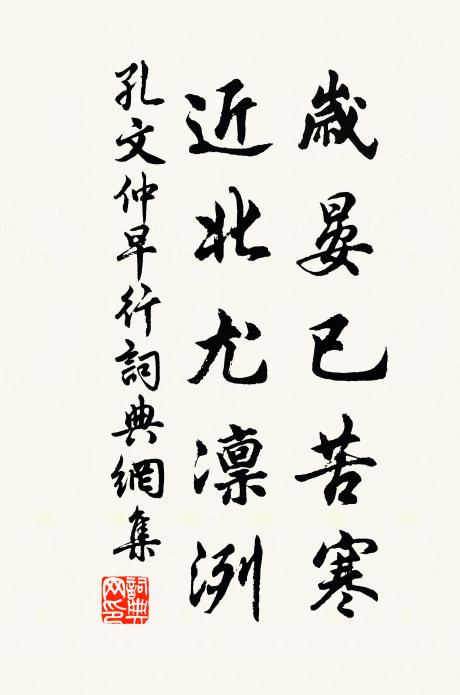 歲晏已苦寒
近北尤凛冽
孔文仲早行詞典網集
詞典网印